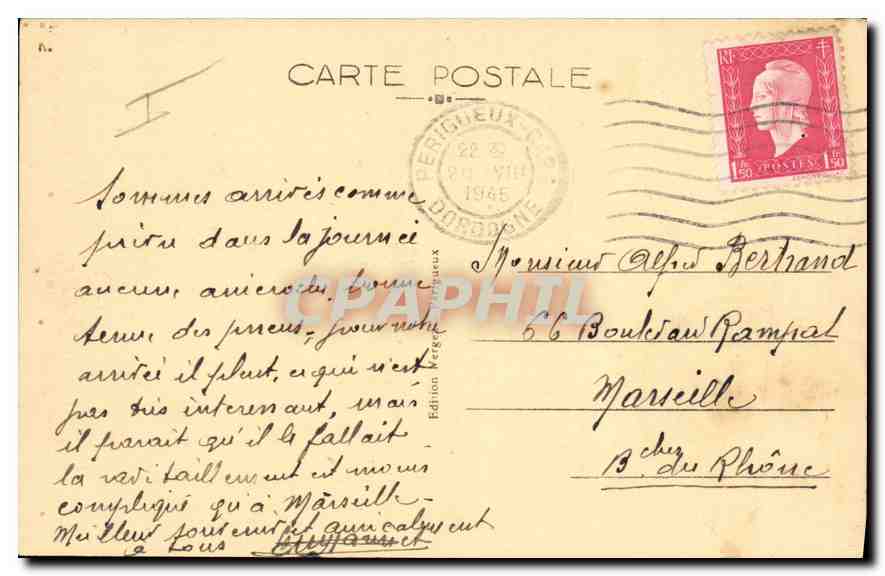 I
CARTE POSTALE
RF
1 fr 50
POSTES
1 fr 50
PERIGUEUX-GARE
22 30
20 VIII
1945
DORDOGNE
Sommes arrivés comme
prévu dans la journée
aucune anicroche, bonne
tenue des pneus, pour notre
arrivée il pleut, ce qui n'est
pas très interessant, mais
il parait qu'il le fallait
la ravitaillement est moins
compliqué qu'à Marseille -
Meilleur souvenir et amicalement
à tous
Edition Verger Périgueux
Monsieur Alfred Bertrand
66 Boulevard Rampal
Marseille
B. ches du Rhône
CPAPHIL